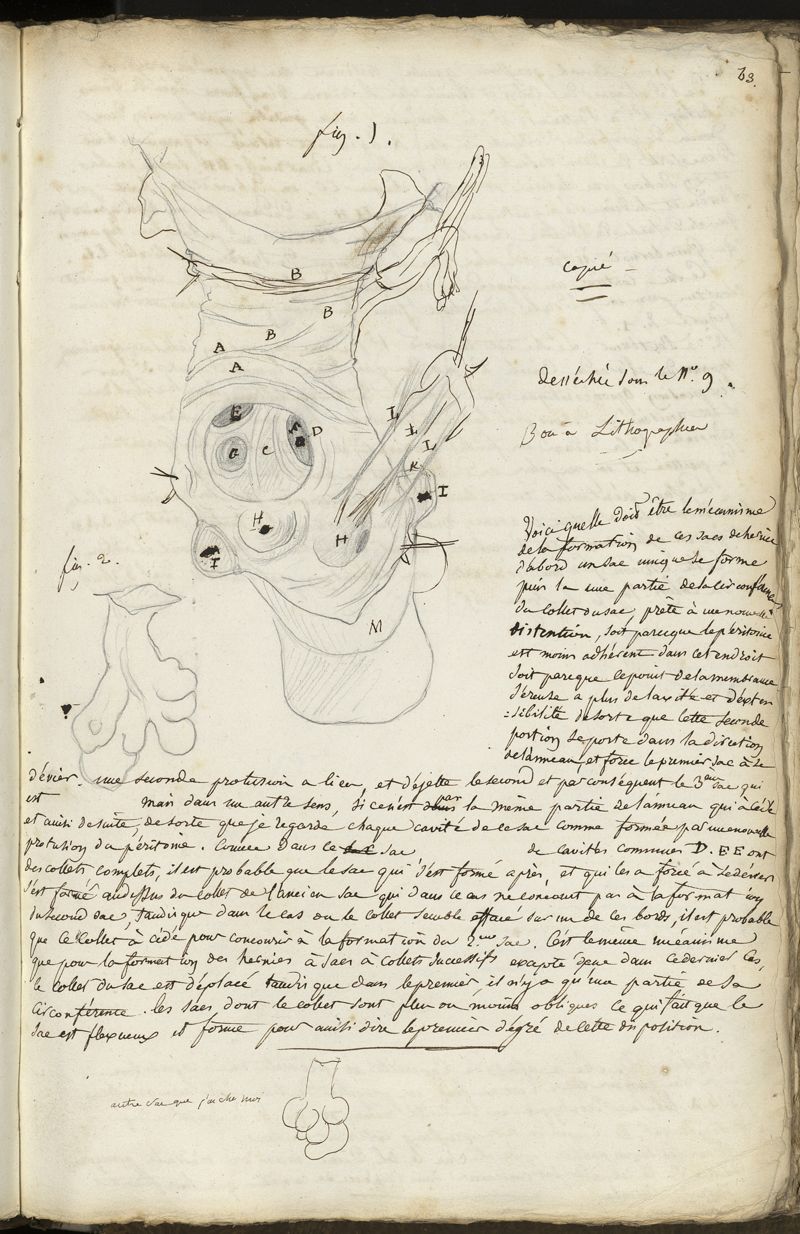 63.
fig. 1.
B
B
B
A
A
E
D
G
C
L
L
L
K
I
H
H
I
M
copié
desséchée sous le N.o 9.
Bon à Lithographier
fig. 2.
Voici quelle doit être le mécanisme
de la formation de ces sacs de hernie
d'abord un sac unique se forme
puis la une partie de la circonférence
du collet du sac prête à une nouvelle
distention, soit parceque le péritoine
est moins adhérent dans cet endroit
soit parceque ce point de la membrane
séreuse a plus de laxité et d'exten
=sibilité de sorte que cette seconde
portion se porte dans la direction
de l'anneau, et force le premier sac à se
dévier. une seconde protusion a lieu, et déjette le second et par conséquent le 3eme sac qui
est mais dans un autre sens, si ce n'est la même partie de l'anneau qui a cédé
et ainsi de suite, de sorte que je regarde chaque cavité de ce sac comme formée par une nouvelle
protusion du péritoine. Comme dans le sac de cavités communes D. E E ont
des collets complets, il est probable que le sac qui s'est formé après, et qui les a forcé à se dévier
s'est formé audessus du collet de l'ancien sac qui dans ce cas ne concourt pas à la format ion
du second sac, tandis que dans le cas ou le collet semble effacé sur un de ces bords, il est probable
que ce collet à cédé pour concourir à la formation du 2eme sac. C'est le même mécanisme
que pour la format ion des hernies à sacs à collets successifs excepté que dans ce dernier cas,
le collet du sac est déplacé tandis que dans le premier, il n'y a qu'une partie de sa
circonférence. les sacs dont le collet sont plus ou moins obliques ce qui fait que le
sac est flexueux et forme pour ainsi dire le premier dégré de cette disposition.
autre sac que j'ai chez moi